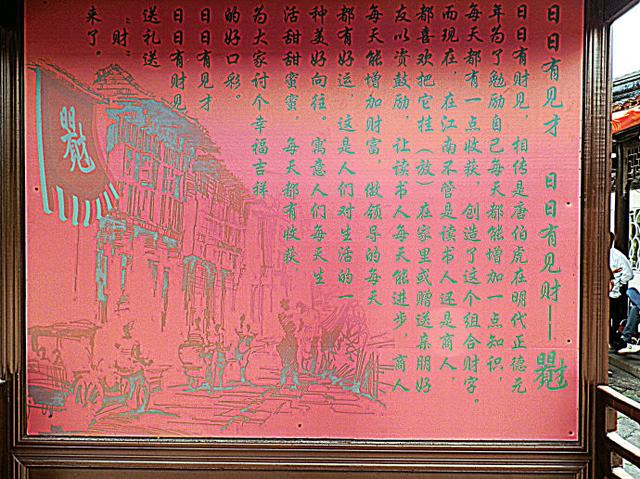 日日有见才 日日有见财——
日日有财见，相传是唐伯虎在明代正德元
年为了勉励自己每天都能增加一点知识，
每天都有一点收获，创造了这个组合财字。
而现在，在江南不管是读书人还是商人，
都喜欢把它挂（放）在家里或赠送亲朋好
友以资鼓励，让读书人每天能进步，商人
每天能增加财富，做领导的每天
都有好运，这是人们对生活的一
种美好向往。寓意人们每天生
活甜甜蜜蜜，每天都有收获，
为大家讨个幸福吉祥
的好口彩。
日日有见才
日日有财见
送礼送
“财”
来了。